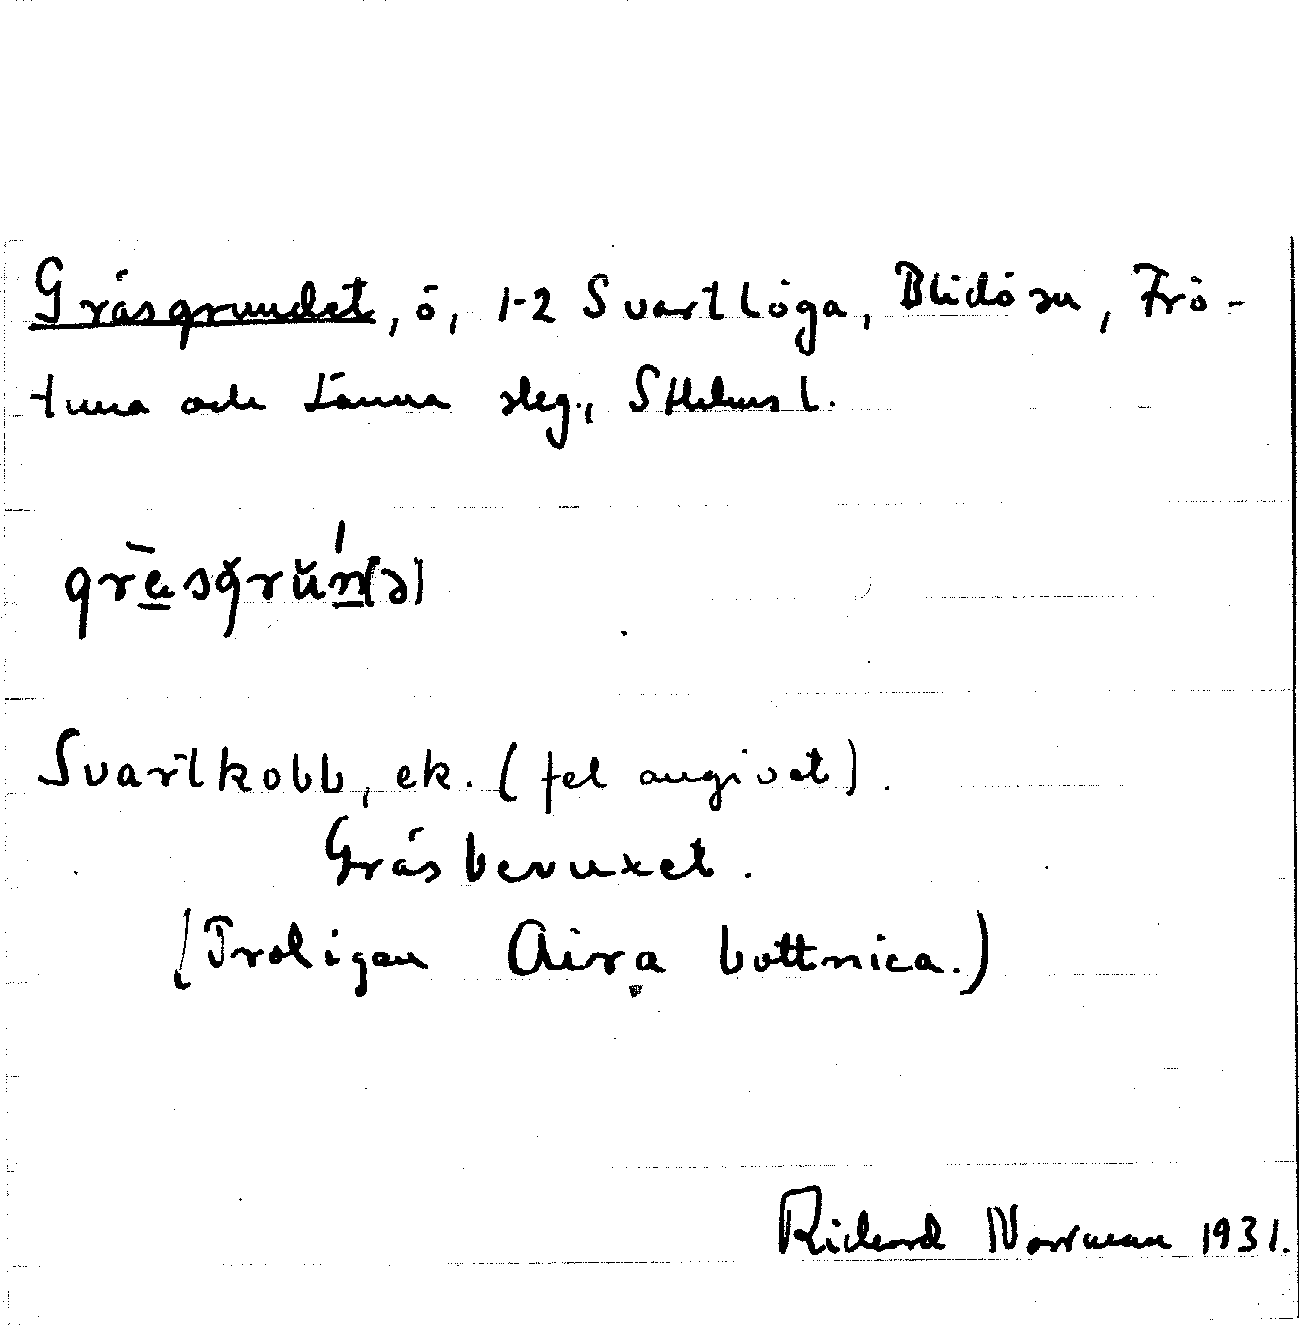 Gräsgrundet, ö, 1-2 Svartlöga, Blidö sn, Frö-
tuna och Länna slg., Sthlms l.
grḕsgrŭń(ə)
Svartkobb, ek. (fel angivet).
Gräsbevuxet.
(Troligen Aira bottnica.)
Rickard Norrman 1931.